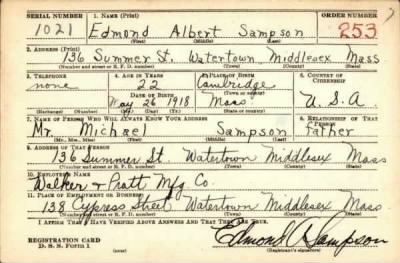 SERIAL NUMBER 1. NAME (Print) ORDER NUMBER
1021 Edmond Albert Sampson 253
(First) (Middle) (Last)
2. ADDRESS (Print)
136 Summer St. Watertown Middlesex Mass
(Number and street or R. F. D. number) (Town) (County) (State)
3. TELEPHONE 4. AGE IN YEARS 5. PLACE OF BIRTH 6. COUNTRY OF CITIZENSHIP
none 22 Cambridge
DATE OF BIRTH (Town or county)
May 26 1918 Mass. U.S.A.
(Exchange) (Number) (Mo.) (Day) (Yr.) (State or country)
7. NAME OF PERSON WHO WILL ALWAYS KNOW YOUR ADDRESS 8. RELATIONSHIP OF THAT PERSON
Mr. Michael Sampson Father
(Mr., Mrs., Miss) (First) (Middle) (Last)
9. ADDRESS OF THAT PERSON
136 Summer St. Watertown Middlesex Mass
(Number and street or R. F. D. number) (Town) (County) (State)
10. EMPLOYER'S NAME
Walker & Pratt Mfg Co.
11. PLACE OF EMPLOYMENT OR BUSINESS
138 Cypress Street Watertown Middlesex Mass.
(Number and street or R. F. D. number) (Town) (County) (State)
I AFFIRM THAT I HAVE VERIFIED ABOVE ANSWERS AND THAT THEY ARE TRUE.
REGISTRATION CARD Edmond A Sampson
D. S. S. Form 1 (over) (Registrant's signature)